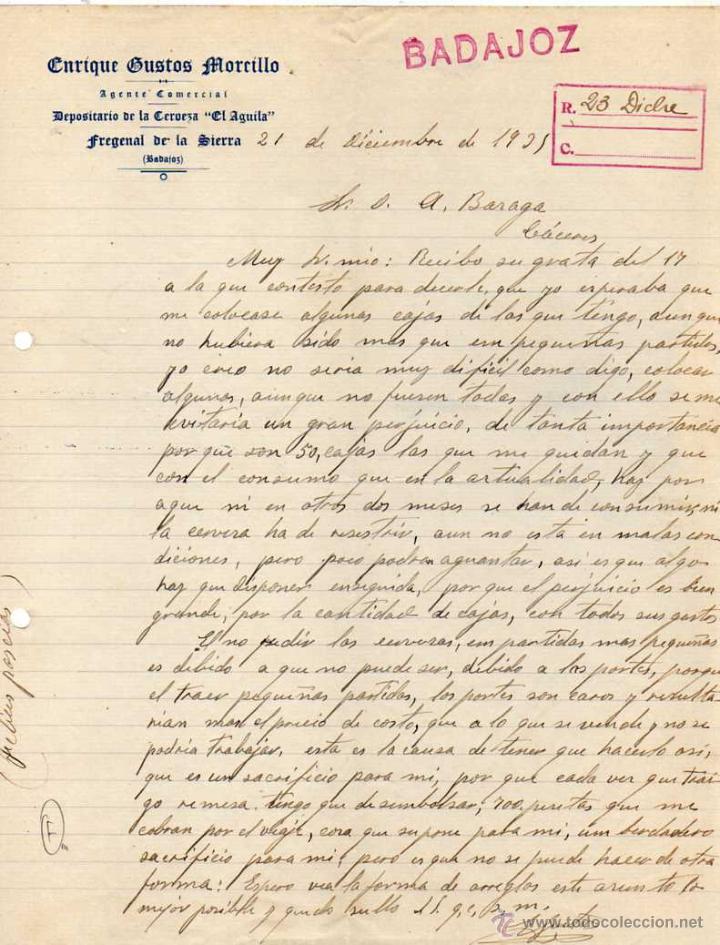 BADAJOZ
Enrique Gustos Morcillo
Agente Comercial
Depositario de la Cerveza "El Aguila"
Fregenal de la Sierra
(Badajoz)
R. 23 Dicbre
C.
21 de Diciembre de 1935
Sr. D. A. Baraga
Cáceres
Muy Sr. mio: Recibo su grata del 17
a la que contesto para decirle, que yo esperaba que
me colocase algunas cajas de las que tengo, aunque
no hubiera sido mas que em pequeñas partidas,
yo creo no seria muy dificil como digo, colocar
algunas, aunque no fuesen todas y con ello se me
evitaria un gran perjuicio, de tanta importancia
por que son 50, cajas las que me quedan y que
con el consumo que en la actualidad, hay por
aqui ni en otros dos meses se han de consumir, ni
la cerveza ha de resestir, aun no esta en malas con
diciones, pero poco podran aguantar, asi es que algo
hay que disponer enseguida, por que el perjuicio es bien
grande, por la cantidad de cajas, con todos sus gastos
El no pedir las cervezas, em partidas mas pequeñas
es debido a que no puede ser, debido a los portes, porque
el traer pequeñas partidas, los portes son caros y resulta
rian mas el precio de costo, que a lo que se vende y no se
podria trabajar, esta es la causa de tener que hacerlo asi,
que es un sacrificio para mi, por que cada vez que trai
go remesa tengo que desembolsar, 700 pesetas que me
cobran por el viaje, cosa que supone para mi, um berdadero
sacrificio para mi, pero es que no se puede hacer de otra
forma: Espero vea la forma de arreglos este asunto lo
mejor posible y quedo suyo s.s. q. e. s. m.
todocoleccion.net
www.todocoleccion.net